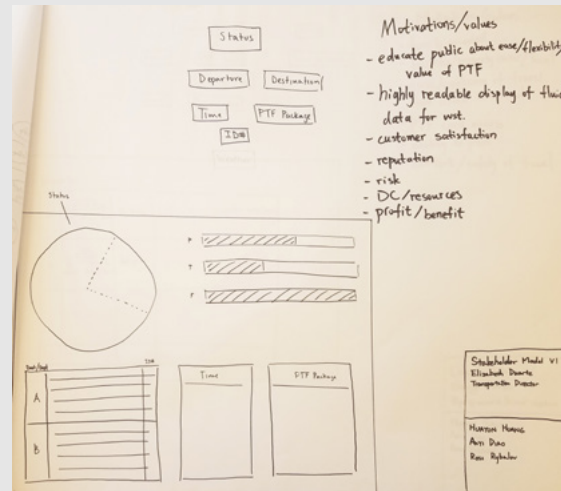 Status
Departure
Destination
Time
PTF Package
ID#
Motivations/values
- educate public about ease/flexibility/
value of PTF
- highly readable display of fluid
data for
- customer satisfaction
- reputation
- risk
- DC/resources
- profit/benefit
Status
P
T
F
A
B
Time
PTF Package
Stakeholder Model V1
Elizabeth Duarte
Transportation Director